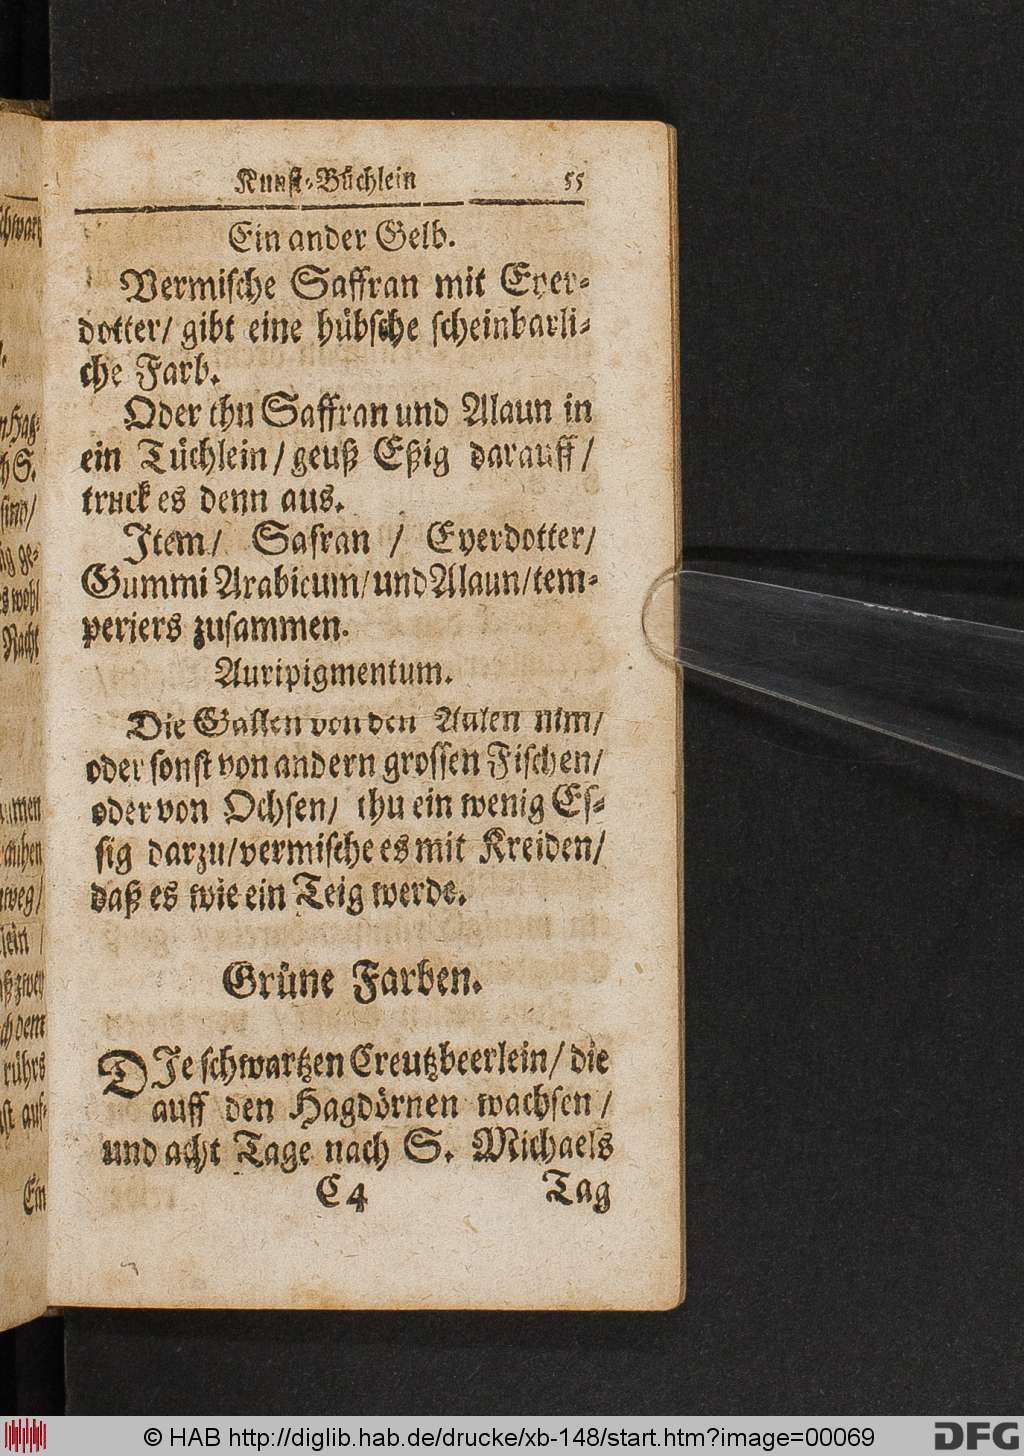 Kunst-Büchlein 55
Ein ander Gelb.
Vermische Saffran mit Eyer-
dotter/ gibt eine hübsche scheinbarli-
che Farb.
Oder thu Saffran und Alaun in
ein Tüchlein/ geuß Eßig darauff/
truck es denn aus.
Item/ Safran / Eyerdotter/
Gummi Arabicum/ und Alaun/ tem-
periers zusammen.
Auripigmentum.
Die Gallen von den Aalen nim/
oder sonst von andern grossen Fischen/
oder von Ochsen/ thu ein wenig Es-
sig darzu/ vermische es mit Kreiden/
daß es wie ein Teig werde.
Grüne Farben.
DIe schwartzen Creutzbeerlein/ die
auff den Hagdörnen wachsen /
und acht Tage nach S. Michaels
C 4 Tag
© HAB http://diglib.hab.de/drucke/xb-148/start.htm?image=00069
DFG